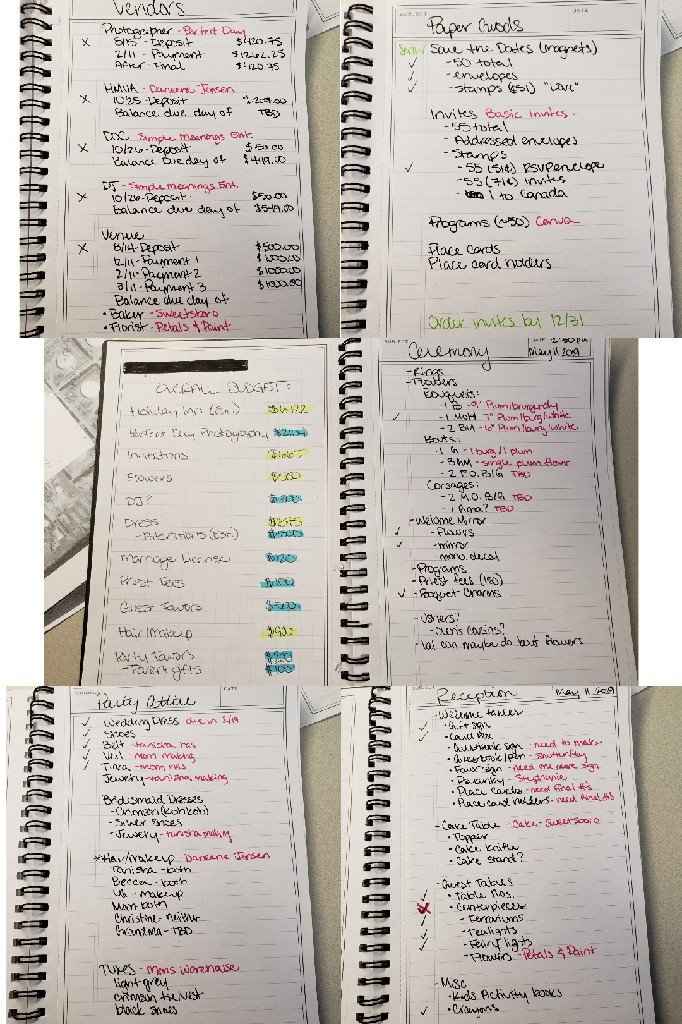 Vendors
Photographer - Perfect Day
X 8/15 - Deposit $420.75
2/11 - Payment $1262.25
After - Final $420.75
HMUA - Darlene Jensen
X 10/25 - Deposit
Balance due day of TBD
DOC Simple Meanings Ent.
X 10/26 - Deposit $50.00
Balance due day of $449.00
DJ - Simple Meanings Ent.
X 10/26 - Deposit $50.00
Balance due day of $549.00
Venue
X 8/14 - Deposit $500.00
12/11 - Payment 1
2/11 - Payment 2 $1000.00
3/11 - Payment 3 $1000.00
Balance due day of
• Baker - Sweetsboro
• Florist - Petals & Paint
Paper Goods
Save the Dates (magnets)
✓ - 50 total
✓ - envelopes
✓ - Stamps (51) "Love"
Invites Basic Invites -
- 55 total
- Addressed envelopes
- Stamps
✓ - 55 (51¢) RSVP envelope
- 55 (71¢) invites
- 1 to Canada
Programs (~50) Canva
Place Cards
Place card holders
Order invites by 12/31
OVERALL BUDGET:
Holiday Inn (Est.)
Perfect Day Photography
Invitations
Flowers
DJ?
Dress
- Alterations (Est.)
Marriage License
Priest Fees
Guest Favors
Hair/Makeup
Party Favors
- Parent gifts
Ceremony
May 11, 2019
- Rings
- Flowers
Bouquets:
- 1 B - 9" Plum/burgundy
✓ - 1 MOH 7" Plum/burg/white
- 2 BM - 6" Plum/burg/white
Bouts:
- 1 G - 1 burg/1 plum
- 3 GM - single plum flower
- 2 F.O. B/G TBD
Corsages:
- 2 M.O. B/G TBD
- 1 Grma? TBD
- Welcome Mirror
✓ - Flowers
✓ - mirror
mono decal
- Programs
- Priest fees (150)
✓ - Bouquet Charms
- Ushers?
- cousins?
Party Attire
✓ Wedding Dress
✓ Shoes
✓ Belt - tanisha has
✓ Veil - mom making
✓ Tiara - mom has
Jewelry - tanisha making
Bridesmaid Dresses
- Silver Shoes
- Jewelry - tanisha making
*Hair/makeup Darlene Jensen
Tanisha - both
Becca - both
- makeup
Mom both
Christine - neither
Grandma - TBD
Tuxes - Mens Warehouse
light grey
crimson tie/vest
black shoes
Reception
May 11, 2019
- Welcome tables
✓ • Gift sign
✓ • Card box
• Guestbook sign - need to make
• Guestbook/pen - Shutterfly
• Favor sign
- Stephanie
• Place Cards - need final #s
• Place card holders - need final #s
- Cake Table - Cake - Sweetsboro
• Topper
• Cake knife
• Cake stand?
- Guest Tables
✓ • Table Nos.
X • Centerpieces
✓ - Terrariums
✓ - Tealights
✓ - Fairy lights
- Flowers - Petals & Paint
- Misc
• Kids Activity books
✓ • Crayons